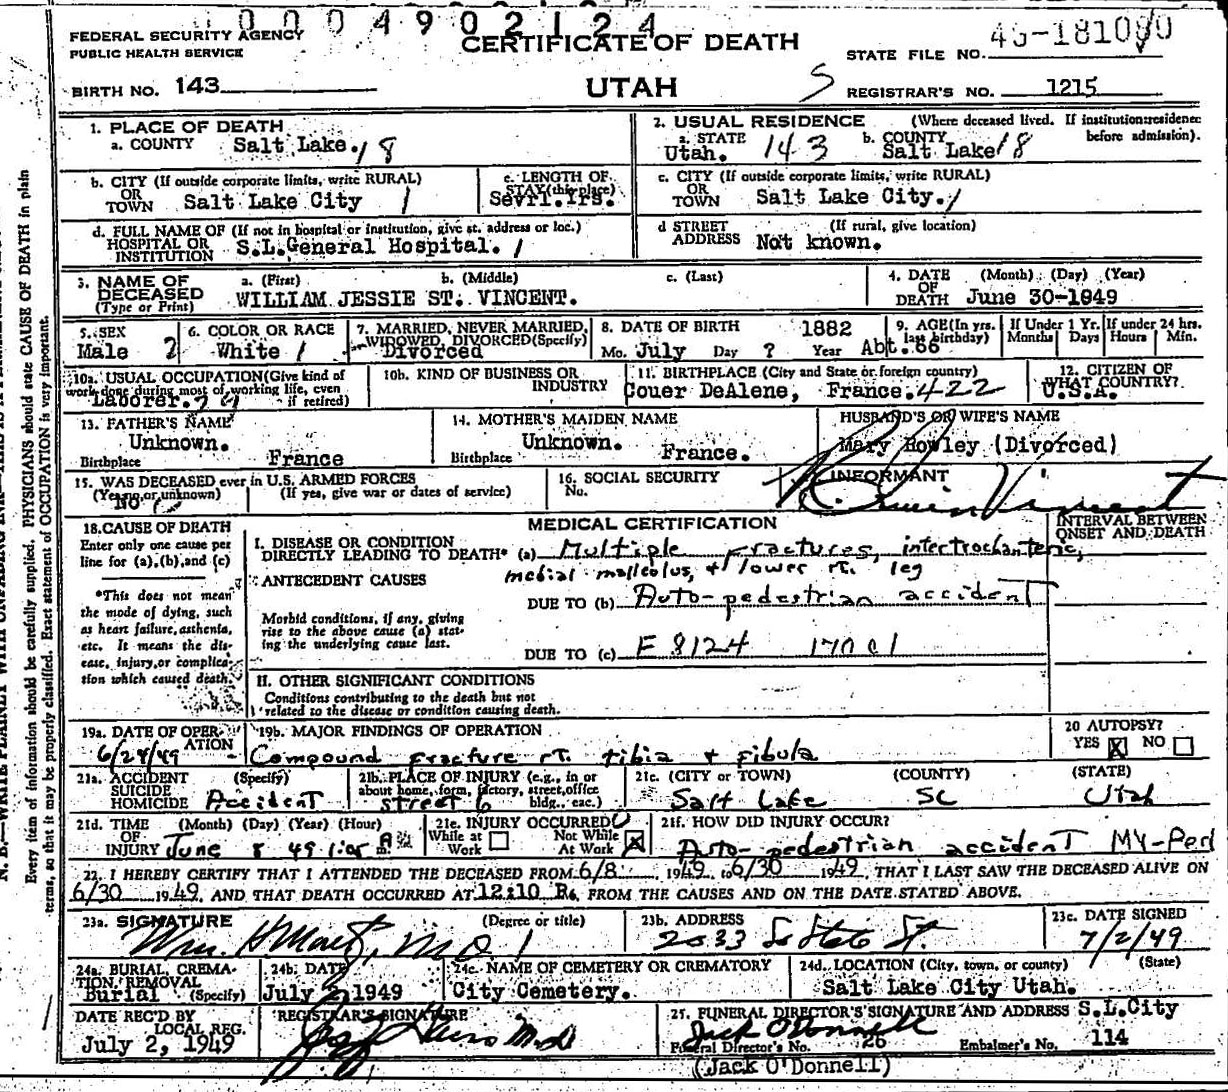 00004902124
FEDERAL SECURITY AGENCY
PUBLIC HEALTH SERVICE
CERTIFICATE OF DEATH
STATE FILE NO.
BIRTH NO. 143
UTAH
S
REGISTRAR'S NO. 1215
1. PLACE OF DEATH
a. COUNTY Salt Lake. 18
2. USUAL RESIDENCE (Where deceased lived. If institution: residence before admission).
a. STATE Utah. 143 b. COUNTY Salt Lake 18
b. CITY (If outside corporate limits, write RURAL)
OR TOWN Salt Lake City 1
c. LENGTH OF STAY (this place) Sevrl. Yrs.
c. CITY (If outside corporate limits, write RURAL)
OR TOWN Salt Lake City. 1
d. FULL NAME OF (If not in hospital or institution, give st. address or loc.)
HOSPITAL OR INSTITUTION S.L.General Hospital. 1
d STREET ADDRESS (If rural, give location)
Not known.
3. NAME OF DECEASED (Type or Print)
a. (First) b. (Middle) c. (Last)
WILLIAM JESSIE ST. VINCENT.
4. DATE OF DEATH (Month) (Day) (Year)
June 30-1949
5. SEX Male 2
6. COLOR OR RACE White 1
7. MARRIED, NEVER MARRIED, WIDOWED, DIVORCED (Specify) Divorced
8. DATE OF BIRTH
Mo. July Day ? Year 1882
9. AGE (In yrs. last birthday) Abt. 66
If Under 1 Yr. Months Days
If under 24 hrs. Hours Min.
10a. USUAL OCCUPATION (Give kind of work done during most of working life, even if retired) Laborer.
10b. KIND OF BUSINESS OR INDUSTRY
11. BIRTHPLACE (City and State or foreign country)
Couer DeAlene, France. 422
12. CITIZEN OF WHAT COUNTRY?
U.S.A.
13. FATHER'S NAME
Unknown.
Birthplace France
14. MOTHER'S MAIDEN NAME
Unknown.
Birthplace France.
HUSBAND'S OR WIFE'S NAME
Mary Rowley (Divorced)
15. WAS DECEASED ever in U.S. ARMED FORCES
(Yes no, or unknown) (If yes, give war or dates of service)
No
16. SOCIAL SECURITY No.
INFORMANT
Vincent
18. CAUSE OF DEATH
Enter only one cause per line for (a), (b), and (c)
*This does not mean the mode of dying, such as heart failure, asthenia, etc. It means the disease, injury, or complication which caused death.
MEDICAL CERTIFICATION
INTERVAL BETWEEN ONSET AND DEATH
I. DISEASE OR CONDITION DIRECTLY LEADING TO DEATH* (a) Multiple fractures, intertrochanteric,
medial malleolus, + lower rt. leg
ANTECEDENT CAUSES
DUE TO (b) Auto-pedestrian accident
Morbid conditions, if any, giving rise to the above cause (a) stating the underlying cause last.
DUE TO (c) E 8124
II. OTHER SIGNIFICANT CONDITIONS
Conditions contributing to the death but not related to the disease or condition causing death.
19a. DATE OF OPERATION
19b. MAJOR FINDINGS OF OPERATION
Compound fracture rt. tibia + fibula
20 AUTOPSY?
YES X NO
21a. ACCIDENT SUICIDE HOMICIDE (Specify) Accident
21b. PLACE OF INJURY (e.g., in or about home, farm, factory, street, office bldg., eac.) street 6
21c. (CITY or TOWN) (COUNTY) (STATE)
Salt Lake SL Utah
21d. TIME OF INJURY (Month) (Day) (Year) (Hour)
June 8 49
21e. INJURY OCCURRED
While at Work Not While At Work X
21f. HOW DID INJURY OCCUR?
Auto-pedestrian accident MV-Ped
22. I HEREBY CERTIFY THAT I ATTENDED THE DECEASED FROM 6/8 1949 to 6/30 1949, THAT I LAST SAW THE DECEASED ALIVE ON
6/30 1949, AND THAT DEATH OCCURRED AT 12:10 P., FROM THE CAUSES AND ON THE DATE STATED ABOVE.
23a. SIGNATURE (Degree or title)
M.D.
23b. ADDRESS
2033 So State St.
23c. DATE SIGNED
7/2/49
24a. BURIAL, CREMATION, REMOVAL (Specify) Burial
24b. DATE July 1949
24c. NAME OF CEMETERY OR CREMATORY
City Cemetery.
24d. LOCATION (City, town, or county) (State)
Salt Lake City Utah.
DATE REC'D BY LOCAL REG.
July 2, 1949
REGISTRAR'S SIGNATURE
25. FUNERAL DIRECTOR'S SIGNATURE AND ADDRESS S.L.City
Jack O'Donnell
Funeral Director's No. 26 Embalmer's No. 114
(Jack O'Donnell)
Every item of information should be carefully supplied. PHYSICIANS should state CAUSE OF DEATH in plain
terms, so that it may be properly classified. Exact statement of OCCUPATION is very important.